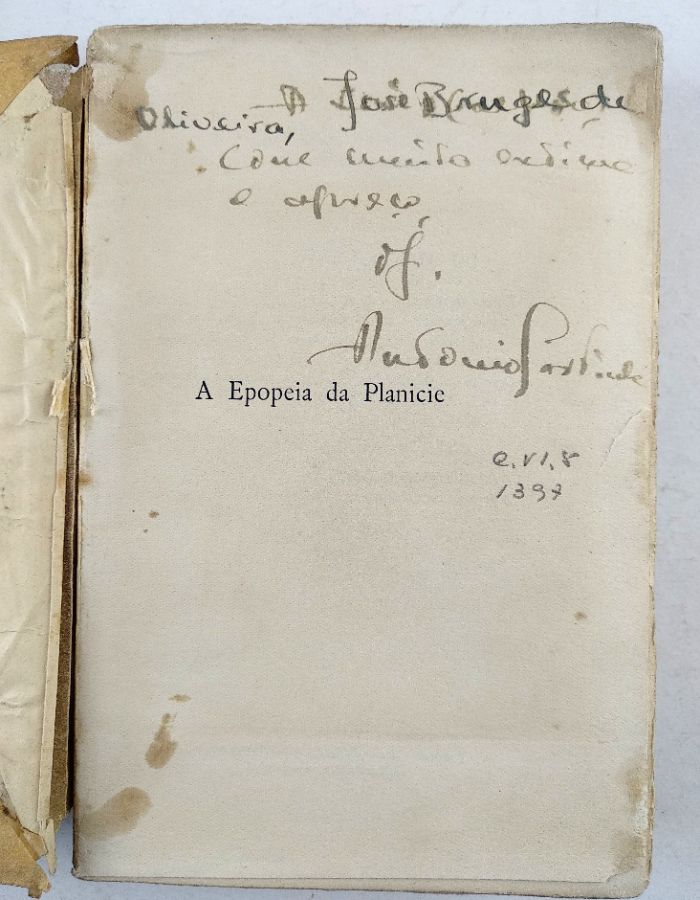 A José Bruges de
Oliveira,
Com muito estima
e apreço,
of.
António Sardinha
A Epopeia da Planicie
e.VI.8
1397